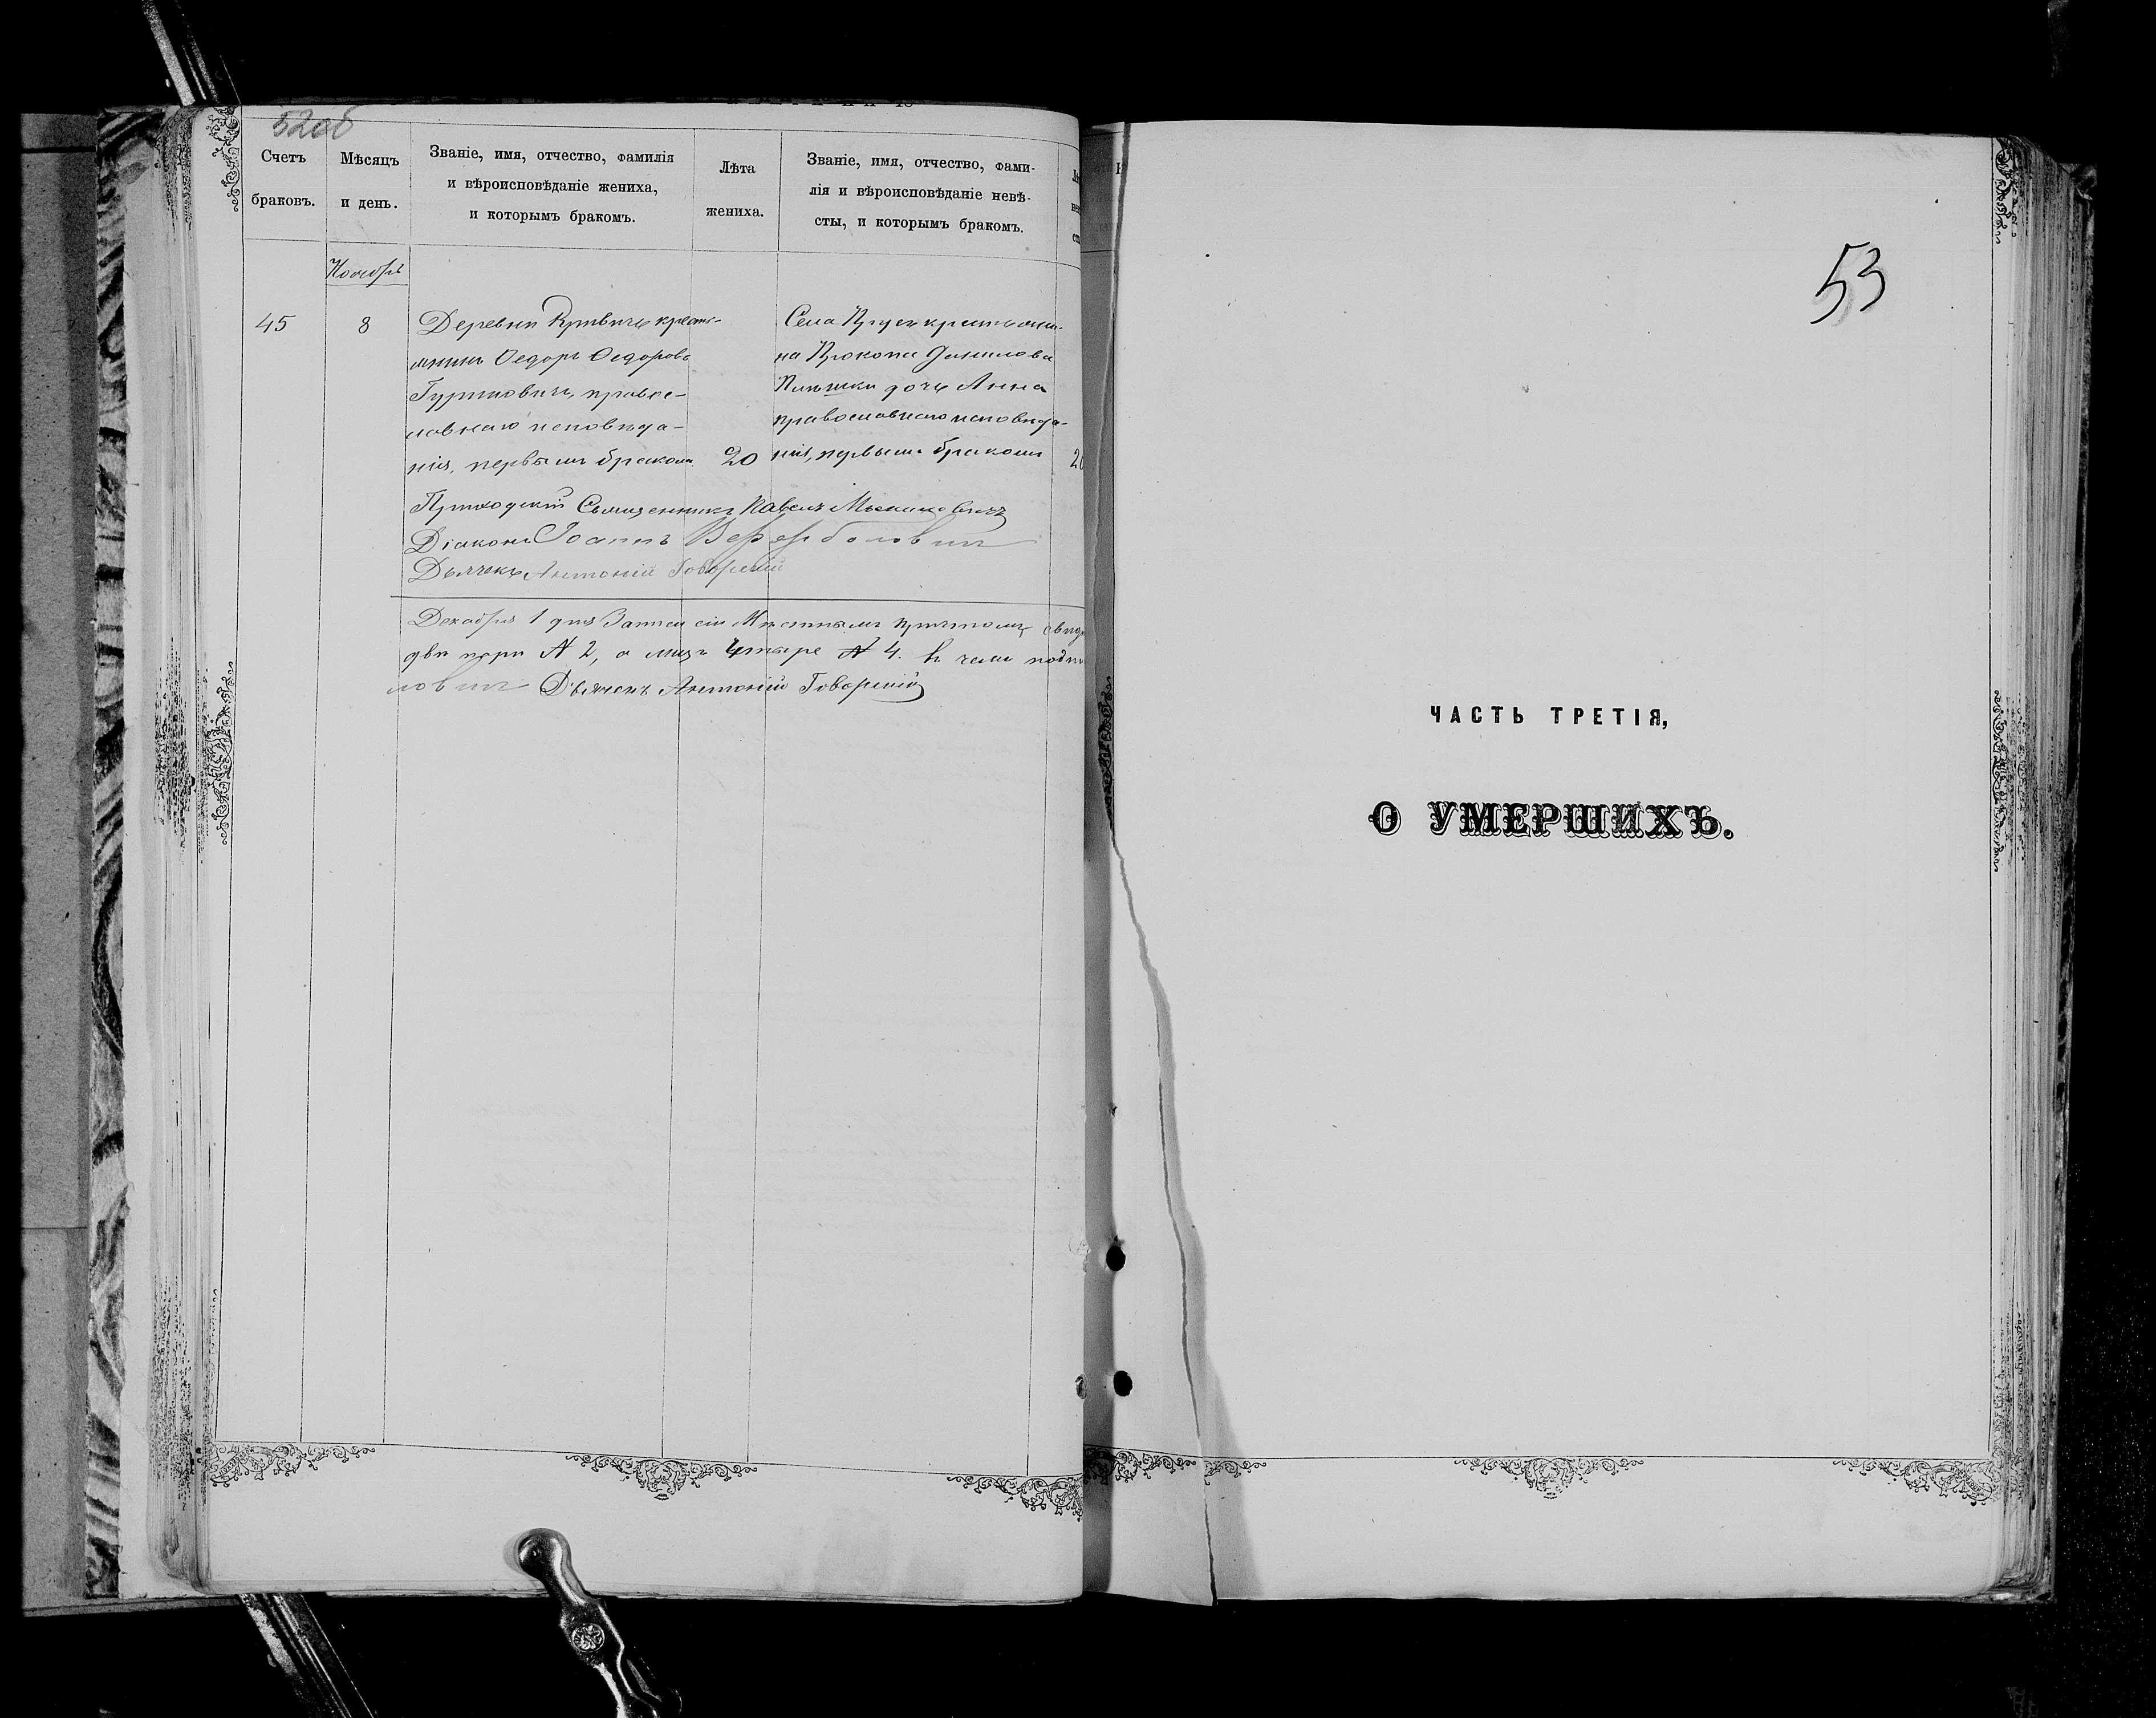 52об
Счетъ
браковъ.
Мѣсяцъ
и день.
Званіе, имя, отчество, фамилія
и вѣроисповѣданіе жениха,
и которымъ бракомъ.
Лѣта
жениха.
Званіе, имя, отчество, фами-
лія и вѣроисповѣданіе невѣ-
сты, и которымъ бракомъ.
Ноябрь
45
8
Деревни Кривичъ кресть-
янинъ Ѳедоръ Ѳедоровъ
Гуриновичъ, правос-
лавнаго исповѣда-
нія, первымъ бракомъ.
20
Села крестьяни-
на Прокопа Данилова
дочь Анна
православнаго исповѣда-
нія, первымъ бракомъ
Приходскій Священникъ Павелъ
Діаконъ Іоаннъ
Дьячекъ Антоній Говорскій
Декабря 1 дня Записи сіи Мѣстнымъ причтомъ
двѣ пары № 2, а лицъ четыре № 4. въ чемъ
ловичъ Дьячекъ Антоній Говорскій
53
ЧАСТЬ ТРЕТІЯ,
О УМЕРШИХЪ.